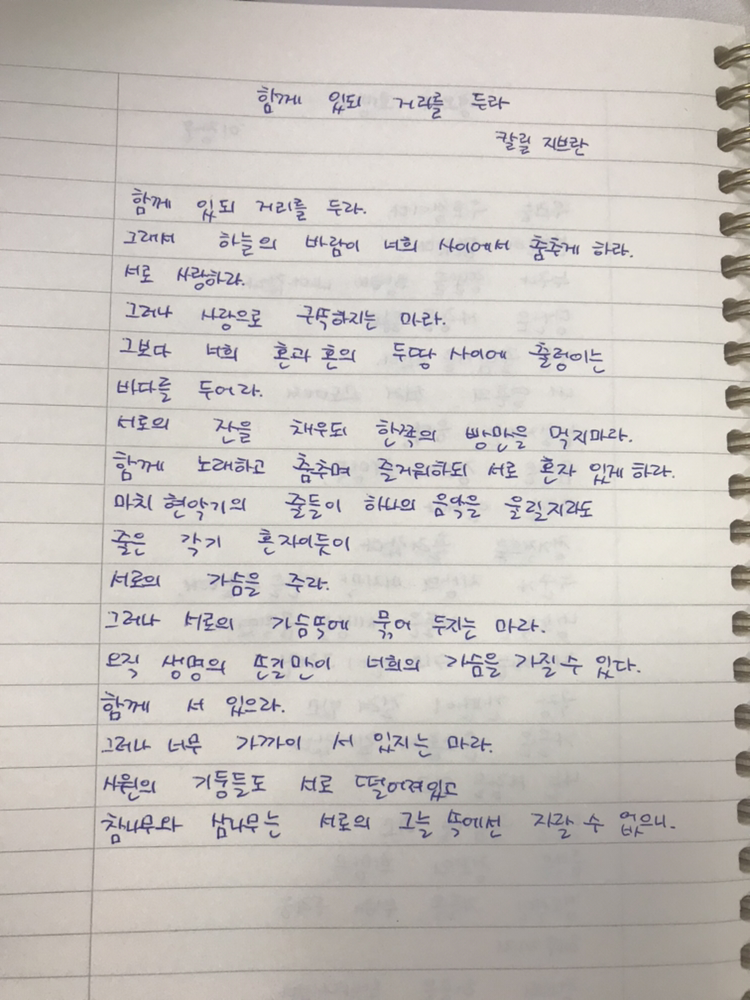 함께 있되 거리를 두라
칼릴 지브란
함께 있되 거리를 두라.
그래서 하늘의 바람이 너희 사이에서 춤추게 하라.
서로 사랑하라.
그러나 사랑으로 구속하지는 마라.
그보다 너희 혼과 혼의 두땅 사이에 출렁이는
바다를 두어라.
서로의 잔을 채우되 한쪽의 빵만을 먹지마라.
함께 노래하고 춤추며 즐거워하되 서로 혼자 있게 하라.
마치 현악기의 줄들이 하나의 음악을 울릴지라도
줄은 각기 혼자이듯이
서로의 가슴을 주라.
그러나 서로의 가슴속에 묶어 두지는 마라.
오직 생명의 손길만이 너희의 가슴을 가질 수 있다.
함께 서 있으라.
그러나 너무 가까이 서 있지는 마라.
사원의 기둥들도 서로 떨어져있고
참나무와 삼나무는 서로의 그늘 속에선 자랄 수 없으니.